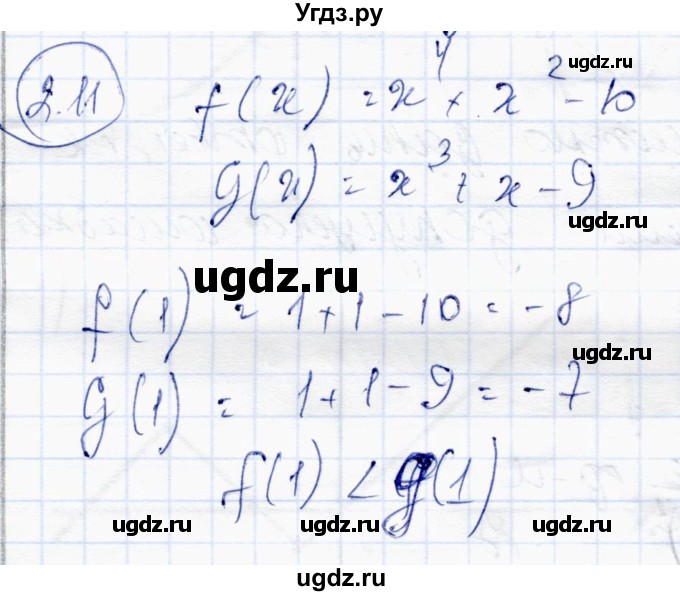 Угдз.ру
2.11
f(x) = x⁴ + x² - 10
ugdz.ru
g(x) = x³ + x - 9
ugdz.ru
ugdz.ru
f(1) = 1+1-10 = -8
ugdz.ru
g(1) = 1+1-9 = -7
f(1) < g(1)
ugdz.ru ugdz.ru ugdz.ru
ugdz.ru